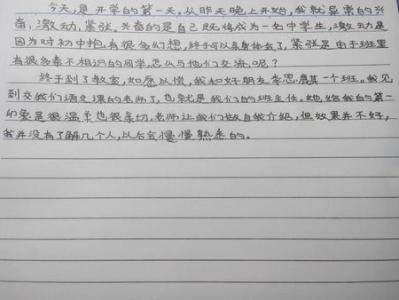 今天,是开学的第一天,从昨天晚上开始,我就异常的兴
奋,激动,紧张,兴奋的是自己既将成为一名中学生,激动是
因为对初中抱有很多幻想,终于可以亲身体会了,紧张是由于班里
有很多素不相识的同学,怎么与他们交流呢?
终于到了教室,如愿以偿,我和好朋友李思腐其一个班。我见
到交我们语文课的老师了,也就是我们的班主任。她给我的第一
印象是很温柔也很亲切,老师让我们做自我介绍,但效果并不好,
我并没有了解几个人,以后会慢慢熟悉的。